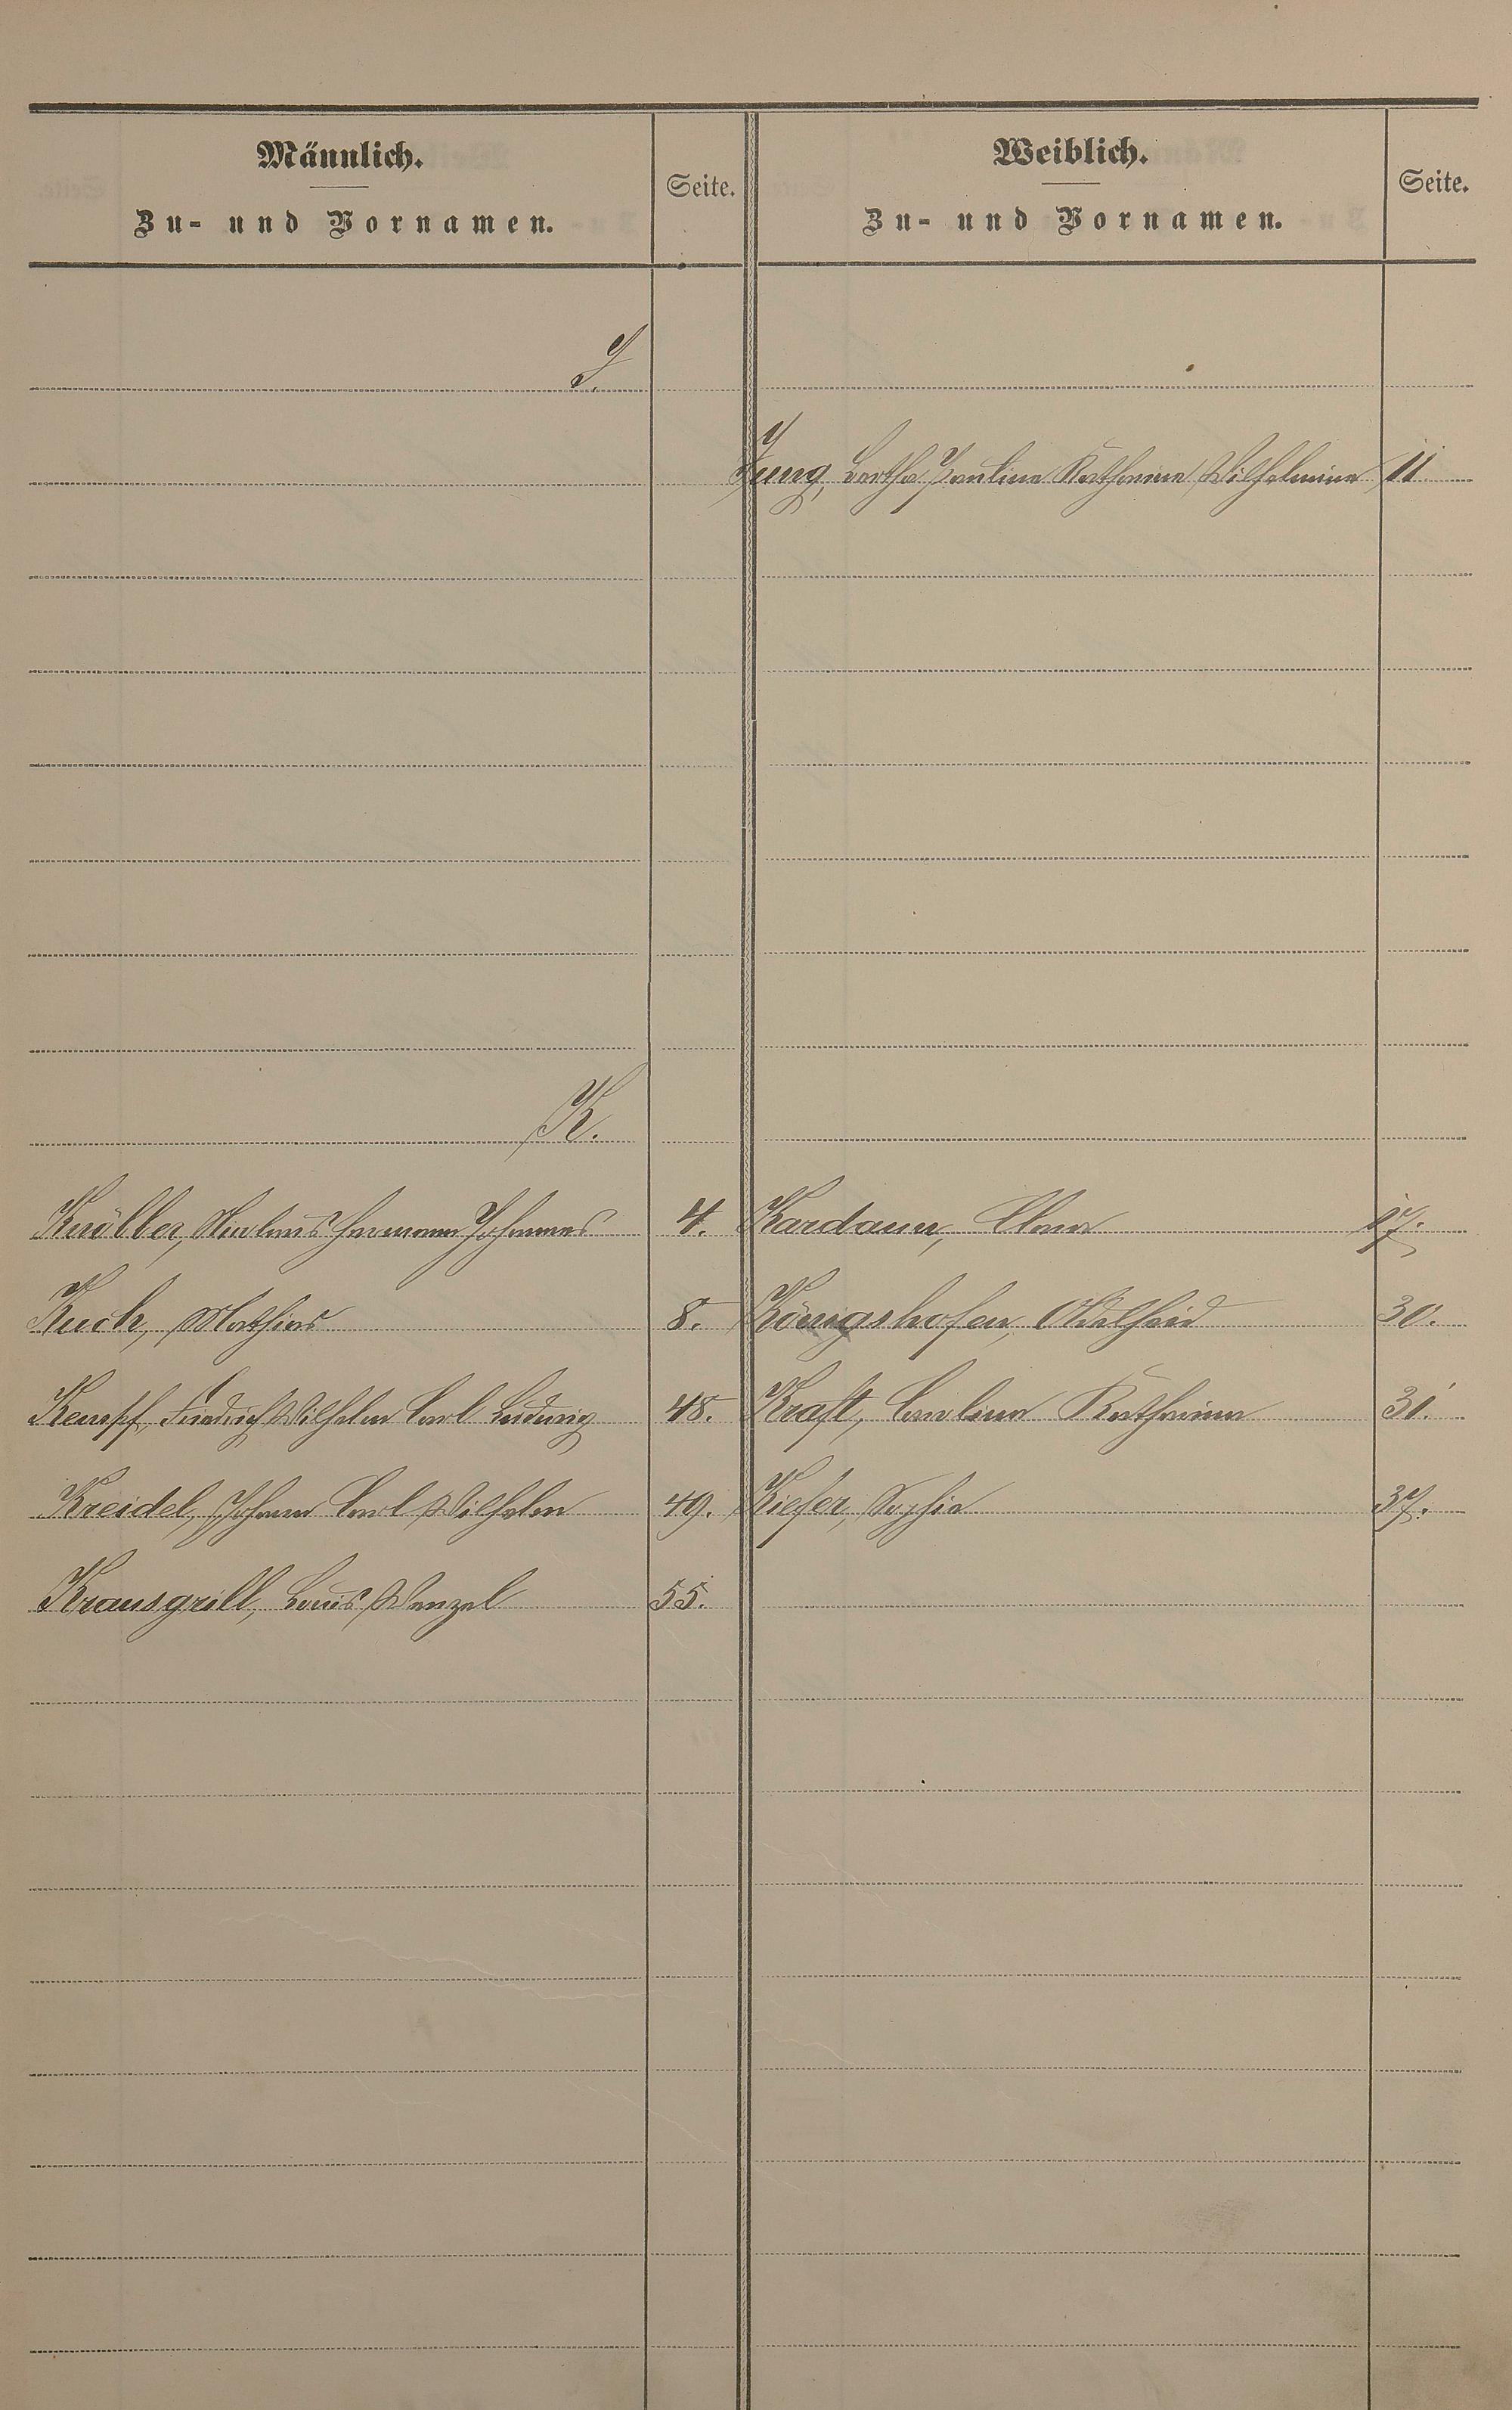 Männlich.
Zu- und Vornamen.
Seite.
Weiblich.
Zu- und Vornamen.
Seite.
J.
Jung, Bertha Pauline Katharine Wilhelmine 11
K.
Knöbber, Nicolaus Hermann Johannes 4. Kardauer, Clara
Kuch, Mathias 8. Königshofen, Adelheid 30.
Kempf, Friedrich Wilhelm Carl Ludwig 48. Kraft, Carolina Katharina 31.
Kreidel, Johann Carl Wilhelm 49. Kiefer, Sophie 37.
Krausgrill, Louis Wenzel 55.